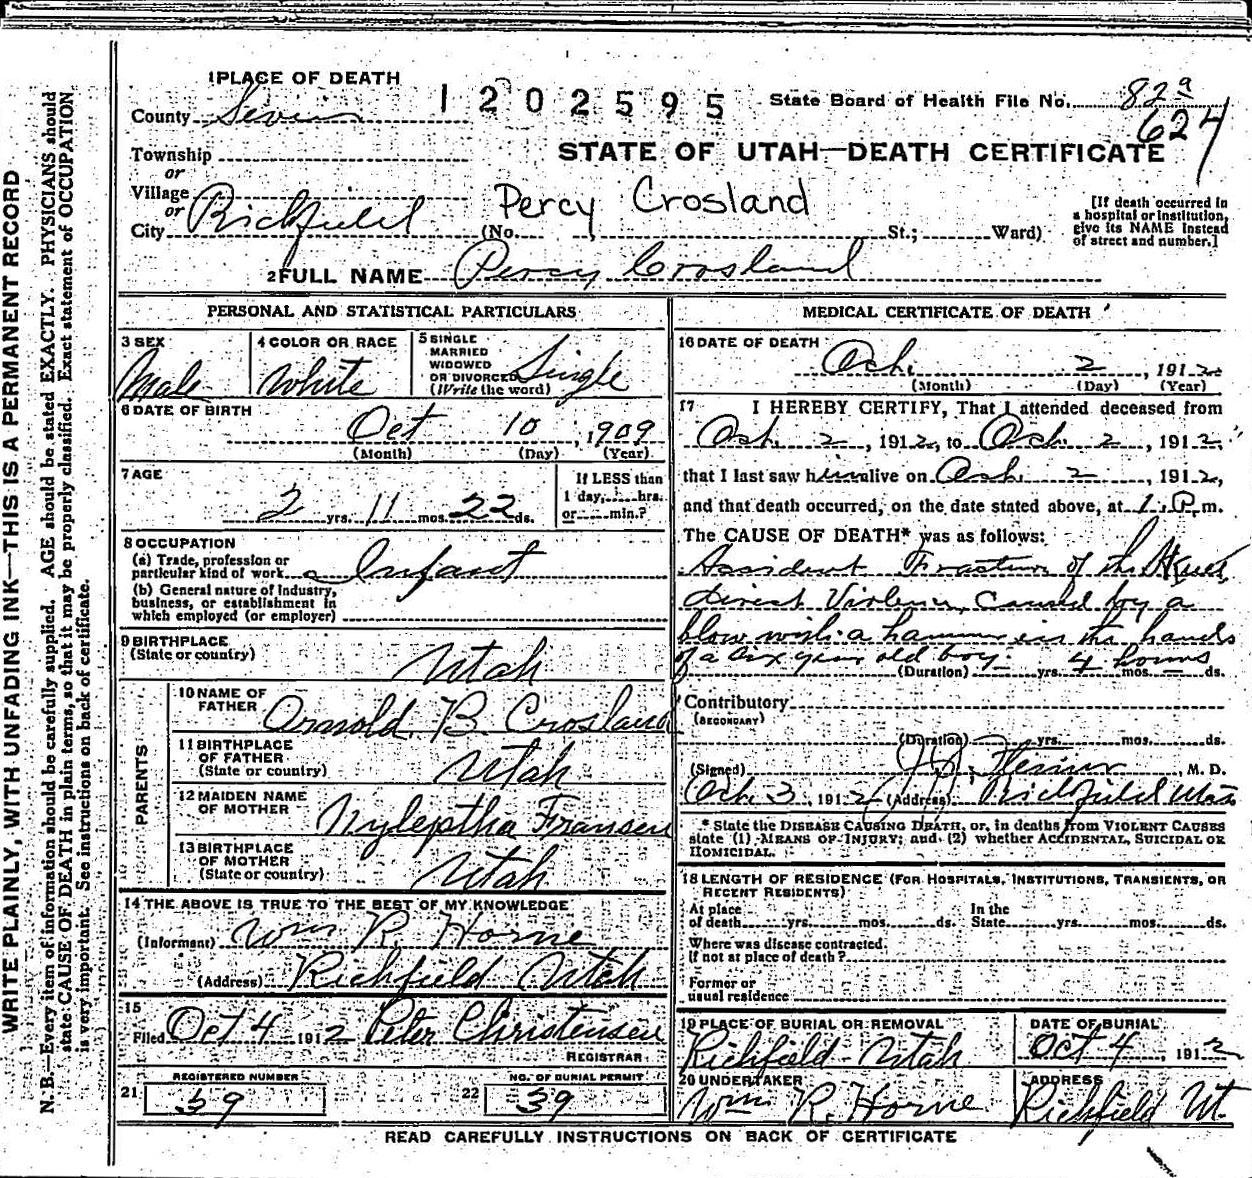 WRITE PLAINLY, WITH UNFADING INK—THIS IS A PERMANENT RECORD
N. B.—Every item of information should be carefully supplied. AGE should be stated EXACTLY. PHYSICIANS should
state CAUSE OF DEATH in plain terms, so that it may be properly classified. Exact statement of OCCUPATION
is very important. See instructions on back of certificate.
1 PLACE OF DEATH
1202595
State Board of Health File No. 82a
624
County Sevier
STATE OF UTAH—DEATH CERTIFICATE
Township
or
Village
or
City Richfield (No. , St.; Ward)
Percy Crosland
[If death occurred in
a hospital or institution,
give its NAME instead
of street and number.]
2 FULL NAME Percy Crosland
PERSONAL AND STATISTICAL PARTICULARS
3 SEX
Male
4 COLOR OR RACE
White
5 SINGLE
MARRIED
WIDOWED
OR DIVORCED
(Write the word)
Single
6 DATE OF BIRTH
Oct 10, 1909
(Month) (Day) (Year)
7 AGE
2 yrs. 11 mos. 22 ds.
If LESS than
1 day, hrs.
or min.?
8 OCCUPATION
(a) Trade, profession or
particular kind of work Infant
(b) General nature of industry,
business, or establishment in
which employed (or employer)
9 BIRTHPLACE
(State or country)
Utah
PARENTS
10 NAME OF
FATHER
Arnold B. Crosland
11 BIRTHPLACE
OF FATHER
(State or country)
Utah
12 MAIDEN NAME
OF MOTHER
Nyleptha Fransen
13 BIRTHPLACE
OF MOTHER
(State or country)
Utah
14 THE ABOVE IS TRUE TO THE BEST OF MY KNOWLEDGE
(Informant) Wm R. Horne
(Address) Richfield Utah
15
Filed Oct 4 1912 Peter Christensen
REGISTRAR
REGISTERED NUMBER
21 39
NO. OF BURIAL PERMIT
22 39
MEDICAL CERTIFICATE OF DEATH
16 DATE OF DEATH
Oct. 2, 1912
(Month) (Day) (Year)
17 I HEREBY CERTIFY, That I attended deceased from
Oct. 2, 1912, to Oct. 2, 1912
that I last saw him alive on Oct. 2, 1912,
and that death occurred, on the date stated above, at 1. P.m.
The CAUSE OF DEATH* was as follows:
Accident Fracture of the Skull
direct Violence, caused by a
blow with a hammer in the hands
of a six year old boy
(Duration) yrs. 4 hours mos. ds.
Contributory
(SECONDARY)
(Duration) yrs. mos. ds.
(Signed) M. D.
Oct. 3, 1912 (Address) Richfield Utah
* State the DISEASE CAUSING DEATH, or, in deaths from VIOLENT CAUSES
state (1) MEANS OF INJURY; and (2) whether ACCIDENTAL, SUICIDAL OR
HOMICIDAL.
18 LENGTH OF RESIDENCE (FOR HOSPITALS, INSTITUTIONS, TRANSIENTS, OR
RECENT RESIDENTS)
At place
of death yrs. mos. ds.
In the
State yrs. mos. ds.
Where was disease contracted
if not at place of death?
Former or
usual residence
19 PLACE OF BURIAL OR REMOVAL
Richfield Utah
DATE OF BURIAL
Oct 4, 1912
20 UNDERTAKER
Wm R. Horne
ADDRESS
Richfield Ut.
READ CAREFULLY INSTRUCTIONS ON BACK OF CERTIFICATE